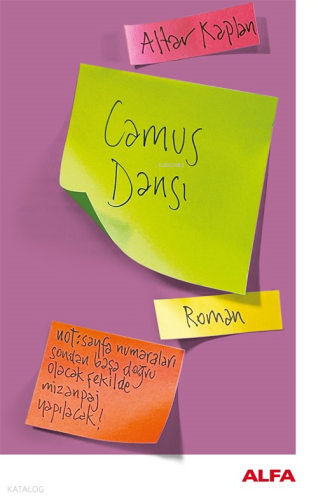 Altar Kaplan
Camus
Dansı
Roman
not: sayfa numaraları
sondan başa doğru
olacak şekilde
mizanpaj
yapılacak!
ALFA
KATALOG